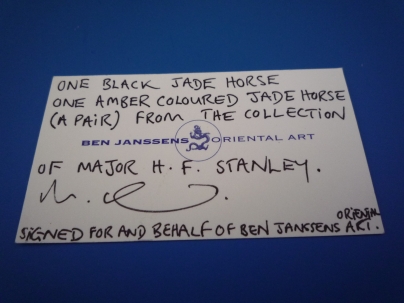 ONE BLACK JADE HORSE
ONE AMBER COLOURED JADE HORSE
(A PAIR) FROM THE COLLECTION
BEN JANSSENS ORIENTAL ART
OF MAJOR H. F. STANLEY.
ORIENTAL
SIGNED FOR AND BEHALF OF BEN JANSSENS ART.